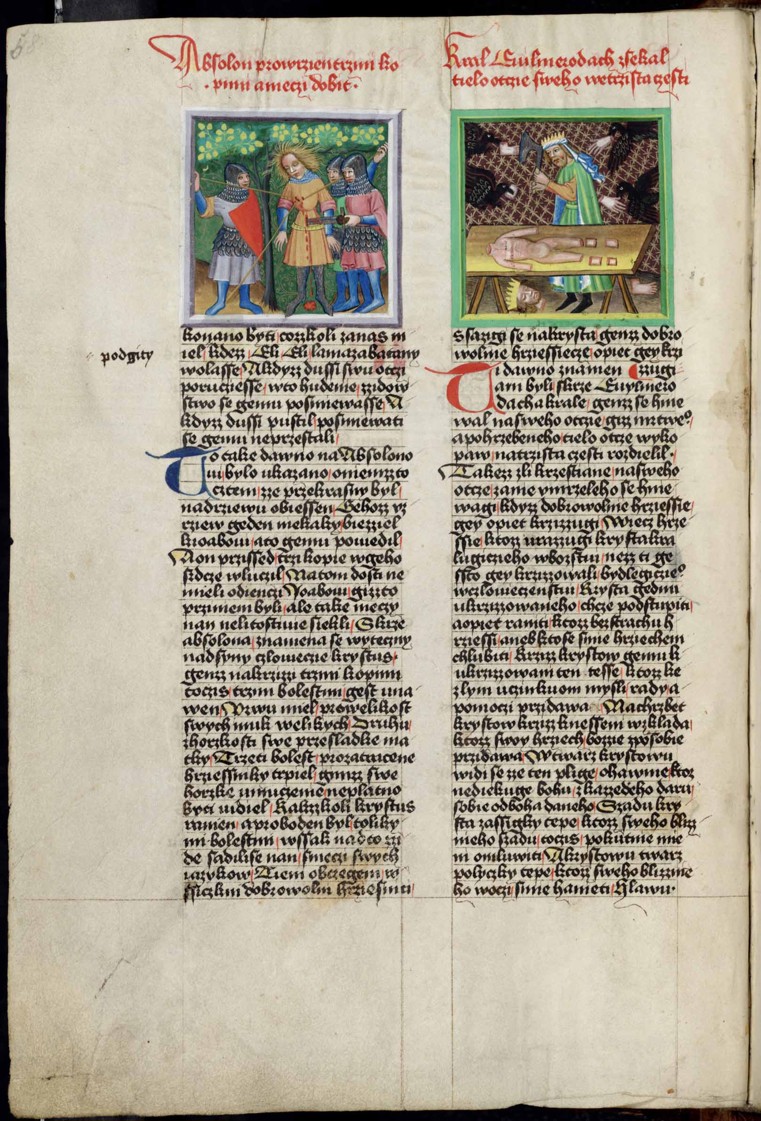 Absolon prowrzien trzmi ko
pimi a meczi dobit.
konano byti cozzkoli zanas m
iel kdez Eli Eli lamazabatany
podgity
wolasse A kdyzz dussi swu otczi
poruczyesse wto hudenie zzidow
stwo se gemu posmiewasse A
kdyzz dussi pustil posmiewati
se gemu neprzestali
To take dawno na Absolono
wi bylo ukazano o niemzz to
cztem zze przekrasny byl
na drziewu obiessen Gehozz vz
rziew geden niekaky biezziel
k ioabowi a to gemu powiedil
A on przissed trzi kopie w geho
srdcze wluczil Na tom dosti ne
mieli odienczi Ioabowi gizz to
przi niem byli ale take meczy
nan nelitostiwie siekli Skrze
absolona znamena se wyteczny
nad syny czlowieczie krystus
genz na krzizi trzmi kopimi
toczis trzmi bolestmi gest una
wen Prwu miel pro welikost
swych muk welikych Druhu
z horzkosti swe przesladke ma
tky Trzeti bolest pro zatracene
hrziessniky trpiel gimzz swe
horzke umuczenie neplatno
byti widiel Kakzzkoli krystus
ranien a proboden byl toliky
mi bolestmi wssak nad to zzi
de sadilise nan smeczi swych
iazykow Tiem obyczegem w
ssiczkni dobrowolni hrziesnici
Kral Ewilmerodach zsekal
tielo otcze sweho we trzista czesti
ssazugi se nakrysta genz dobro
wolnie hrzessiecze opiet gey krzi
Ti dawno znameu czzugi
ani byli skrze Ewylmero
dacha krale genz se hnie
wal na sweho otcze gizz mrtweo
a pohrzebeneho tielo otcze wyko
paw na trzista czesti rozdielil
Takezz zli krzestiane na sweho
otcze za nie umrzeleho se hnie
wagi kdyz dobrowolnie hrziessie
gey opiet krzizzugi Wiecz hrze
ssie ktozz urazzugi krysta kra
lugicieho w bozstwi nezz ti ge
ssto gey krzizzowali bydlegicieo
w czlowieczenstwi Krysta gedni
ukrzizzowaneho chcze podstupiti
a opiet raniti ktozz bez strachu h
rziessi aneb kto se smie hrziechem
chlubiti Krzizz krystow gemu k
ukrzizzowani ten tesse ktozz ke
zlym uczinkuom mysli rady a
pomoczi przidawa Na chrzbet
krystow krzizz k nessenie wzklada
ktozz swoy hrziech bozzie zposobie
przidawa W twarz krystowu
widi se zze ten plige ktoz
nediekuge bohu z kazzdeho daru
sobie od boha daneho Szadu kry
sta zassigky tepe ktozz sweho blizz
nieho szadu toczis pokutnie mie
ni omluwiti A krystowu twarz
polyczky tepe ktozz sweho blizznie
ho w oczi smie haneti Hlawu